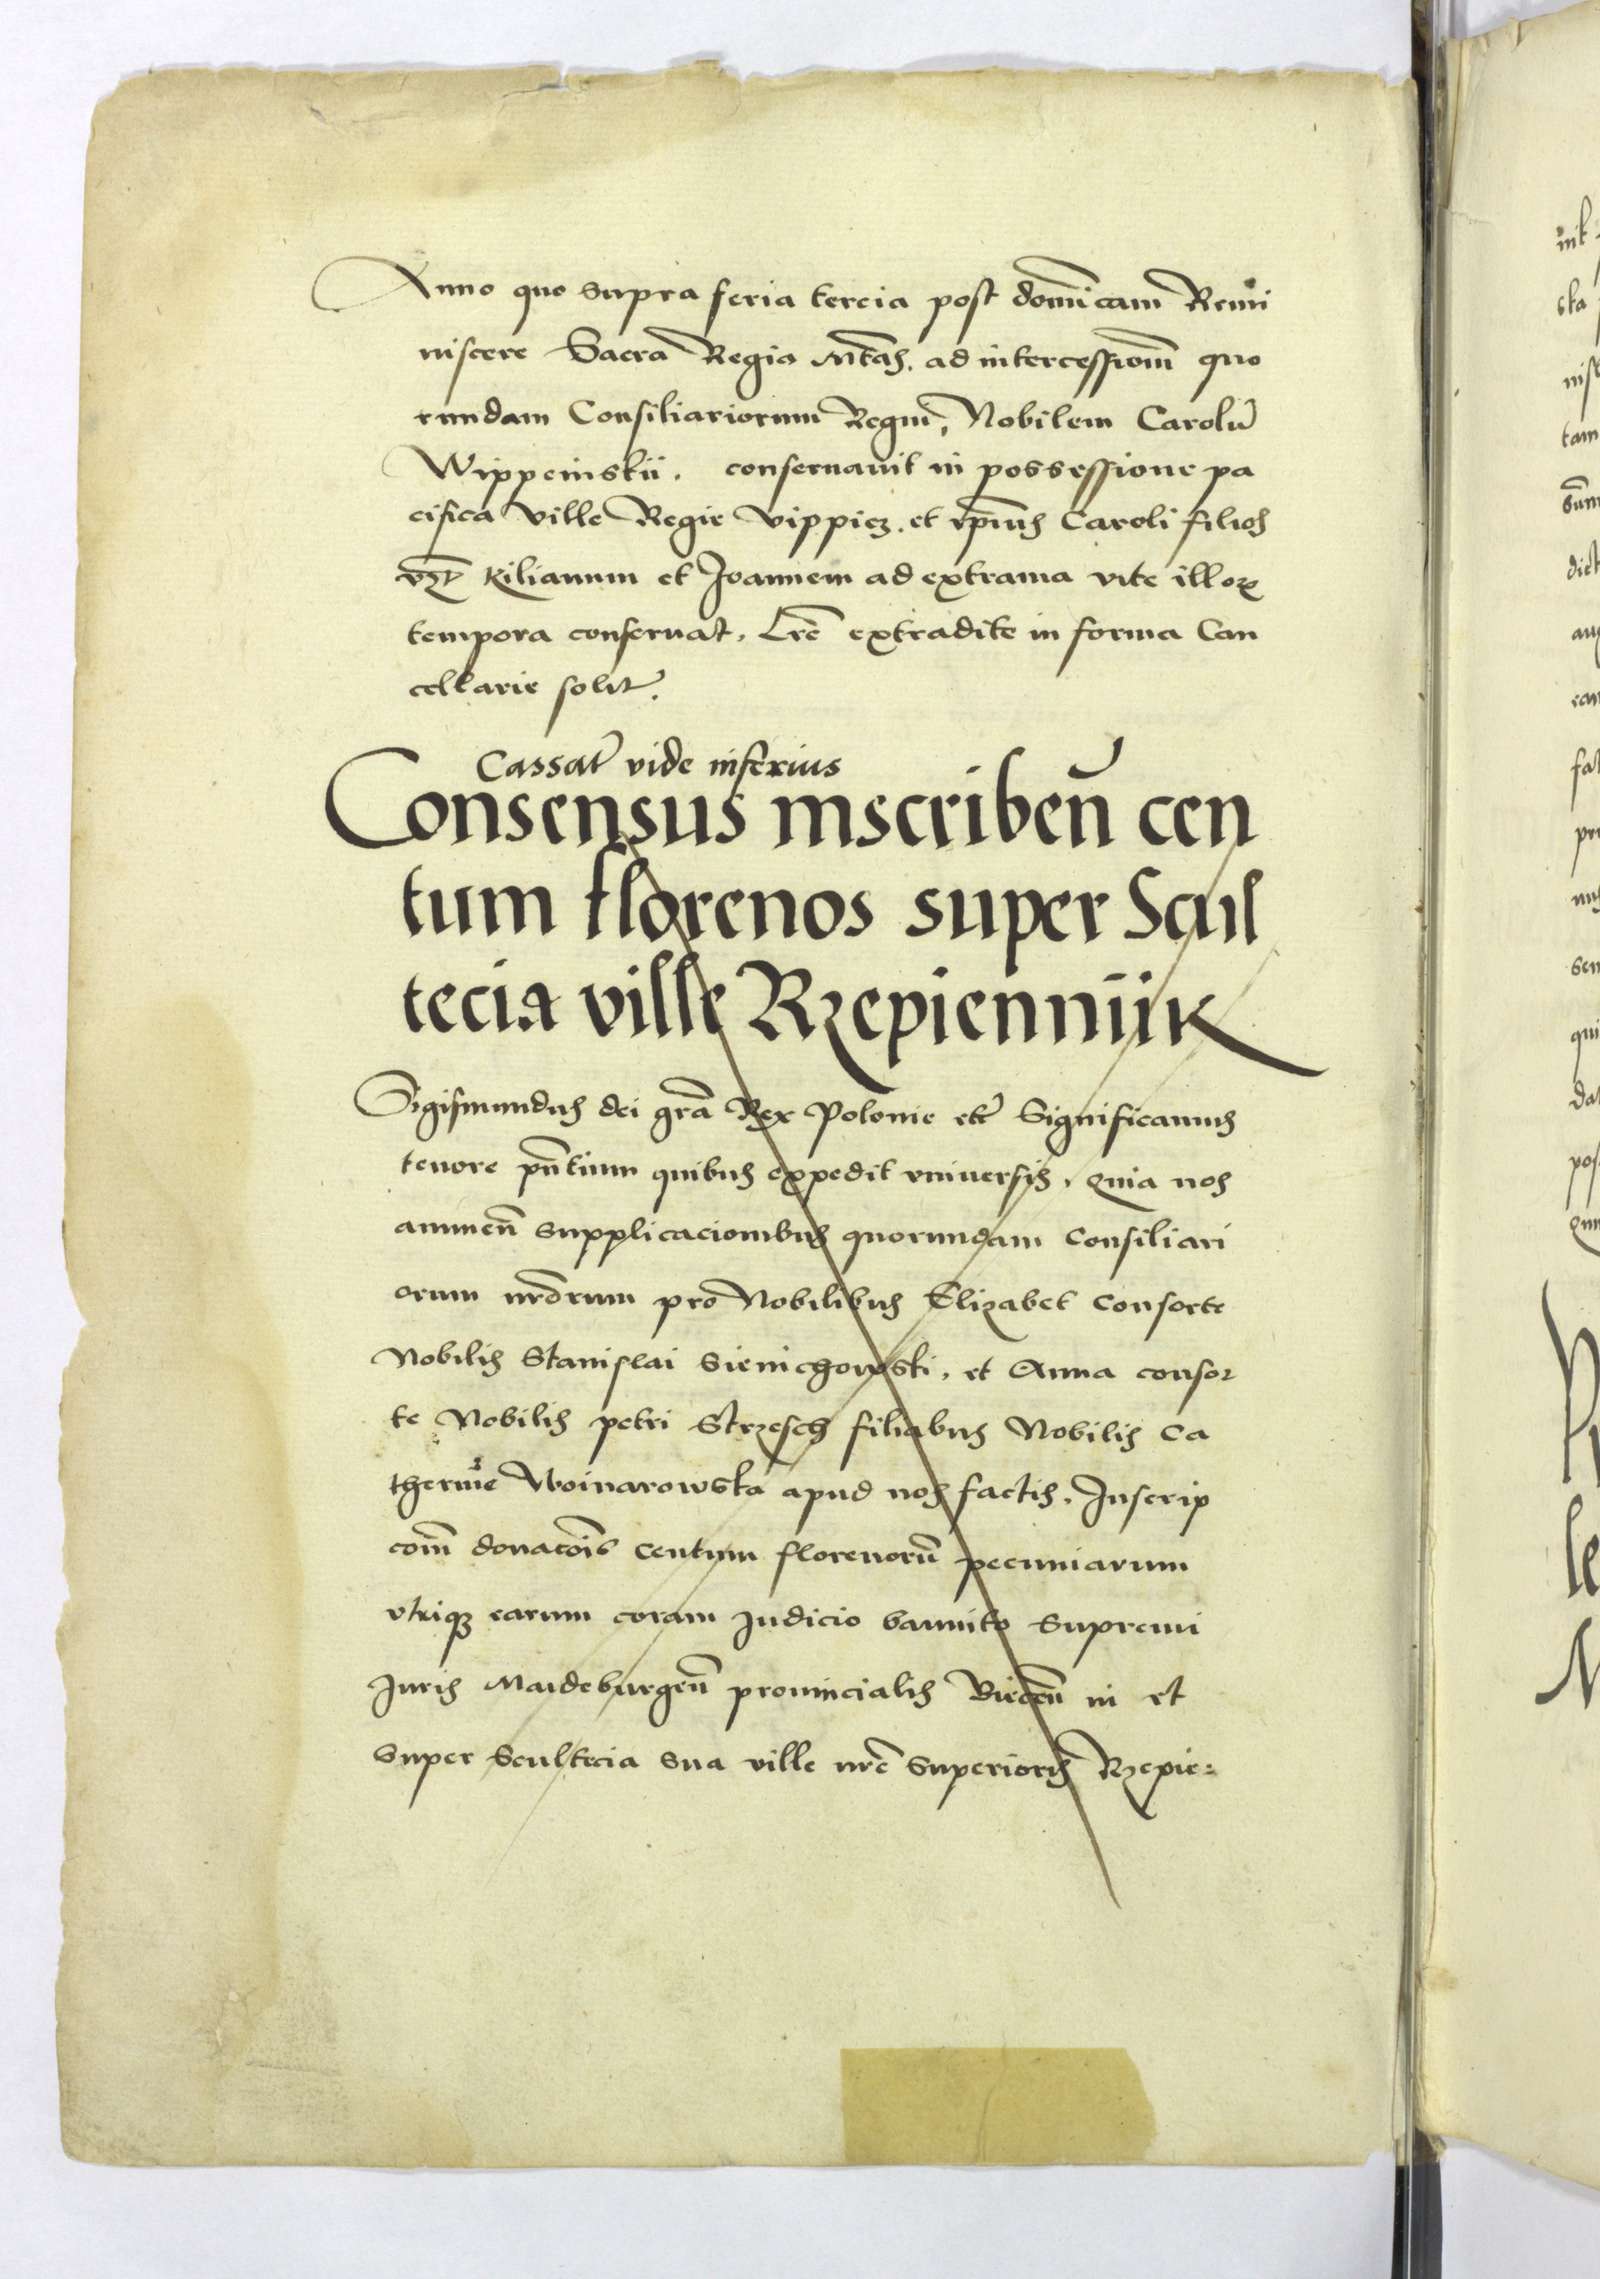 Anno quo supra feria tercia post domīcam Remi
niscere Sacra Regia Mtās. ad intercessionē quo
rundam Consiliariorum Regni, Nobilem Carolū
Wippeinskii. conseruauit in possessione pa
cifica ville Regie Vippiez. et ipīus Caroli filios
vzt Kilianum et Joannem ad extrama vite illorꝫ
tempora conseruat. Lrē extradite in forma Can
cellarie solit.
Cassatr vide inferius
Consensus inscribeñ cen
tum florenos super Scul
tecia ville Rzepienniik
Sigismundus dei grā Rex Polonie etc Significamus
tenore pñtium quibus expedit vniuersis. Quia nos
annueñ supplicacionibus quorundam Consiliari
orum nrōrum pro Nobilibus Elizabet Consorte
Nobilis Stanislai Sienichowski. et Anna consor
te Nobilis petri Strzesch filiabus Nobilis Ca
therine Woinarowska apud nos factis. Inscrip
conī donacōis centum florenorū pecuniarum
vtriqꝫ earum coram Judicio bannito Supremi
Juris Maideburgeñ prouincialis Bieceñ in et
super Scultecia sua ville nrē superioris Rzepie=
nit
sta
nis
tam
dict
au
ean
fat
pr
sen
qui
da
pos
le